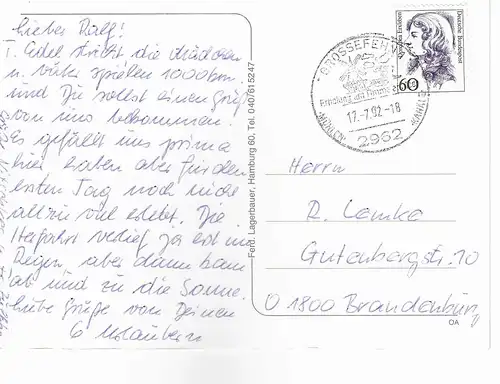 Lieber Ralf!
T. Adel strickt die Mädchen
u. Väter spielen 1000km
und Du sollst einen Gruß
von uns bekommen.
Es gefällt uns prima
hier, haben aber für den
ersten Tag noch nicht
allzu viel erlebt. Die
Herfahrt verlief ja erst im
Regen, aber dann kam
ab und zu die Sonne.
Liebe Grüße von Deinen
6 Urlaubern
Ferd. Lagerbauer, Hamburg 60, Tel. 040/615247
Deutsche Bundespost
60
GROSSEFEHN
Erholung am Timmeler
17.-7.92-18
MÜHLEN
2962
Herrn
R. Lemke
Gutenbergstr. 10
O 1800 Brandenburg
OA